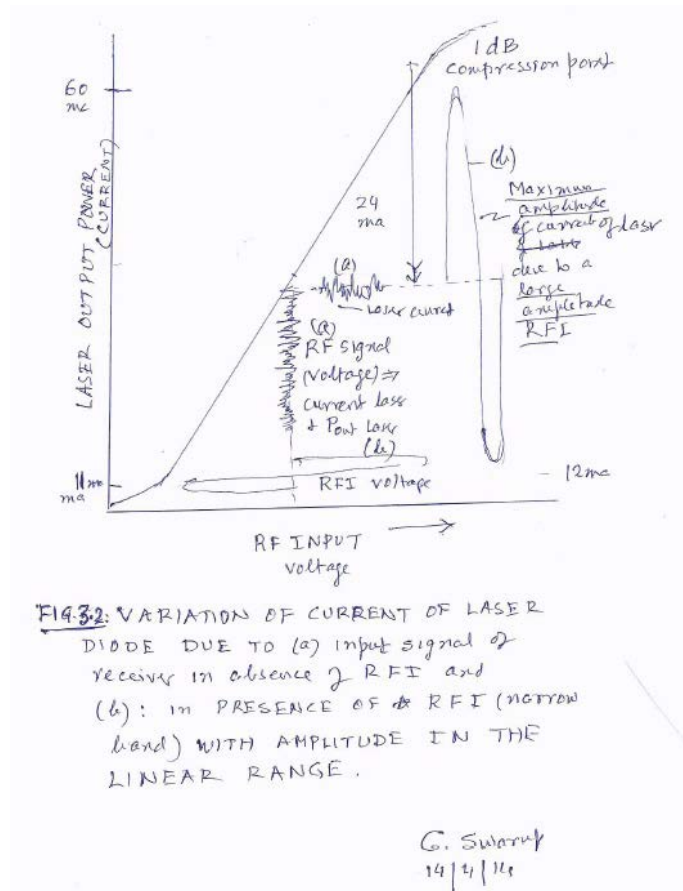 1 dB
compression point
60
ma
LASER OUTPUT POWER
(CURRENT)
24
ma
(b)
Maximum
amplitude
of current of laser
due to a
large
amplitude
RFI
(a)
Laser current
(a)
RF signal
(voltage) ⇒
current laser
+ Pout Laser
(b)
RFI voltage
11
ma
- 12ma
RF INPUT →
voltage
FIG.3.2: VARIATION OF CURRENT OF LASER
DIODE DUE TO (a) input signal of
receiver in absence of RFI and
(b): in PRESENCE OF RFI (narrow
band) WITH AMPLITUDE IN THE
LINEAR RANGE.
G. Swarup
14/4/14